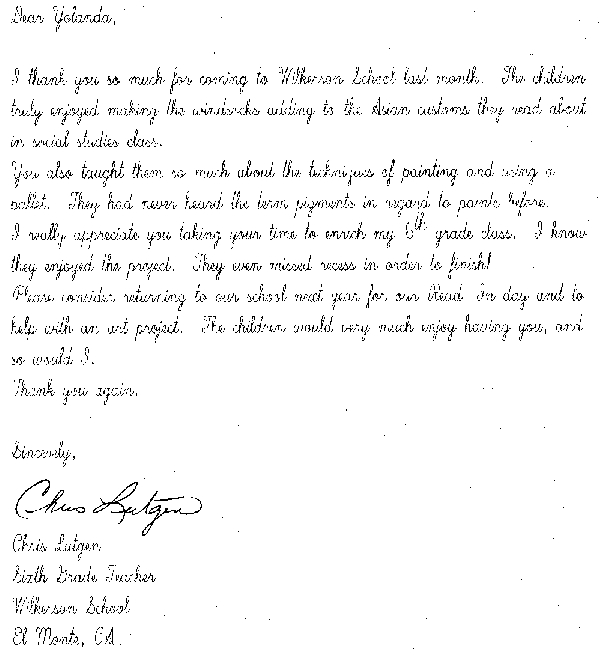 Dear Yolanda,
I thank you so much for coming to Wilkerson School last month. The children
truly enjoyed making the windsocks adding to the Asian customs they read about
in social studies class.
You also taught them so much about the techniques of painting and using a
pallet. They had never heard the term pigments in regard to paints before.
I really appreciate you taking your time to enrich my 6th grade class. I know
they enjoyed the project. They even missed recess in order to finish!
Please consider returning to our school next year for our Read In day and to
help with an art project. The children would very much enjoy having you, and
so would I.
Thank you again.
Sincerely,
Chris Lutgen
Chris Lutgen
Sixth Grade Teacher
Wilkerson School
El Monte, CA.